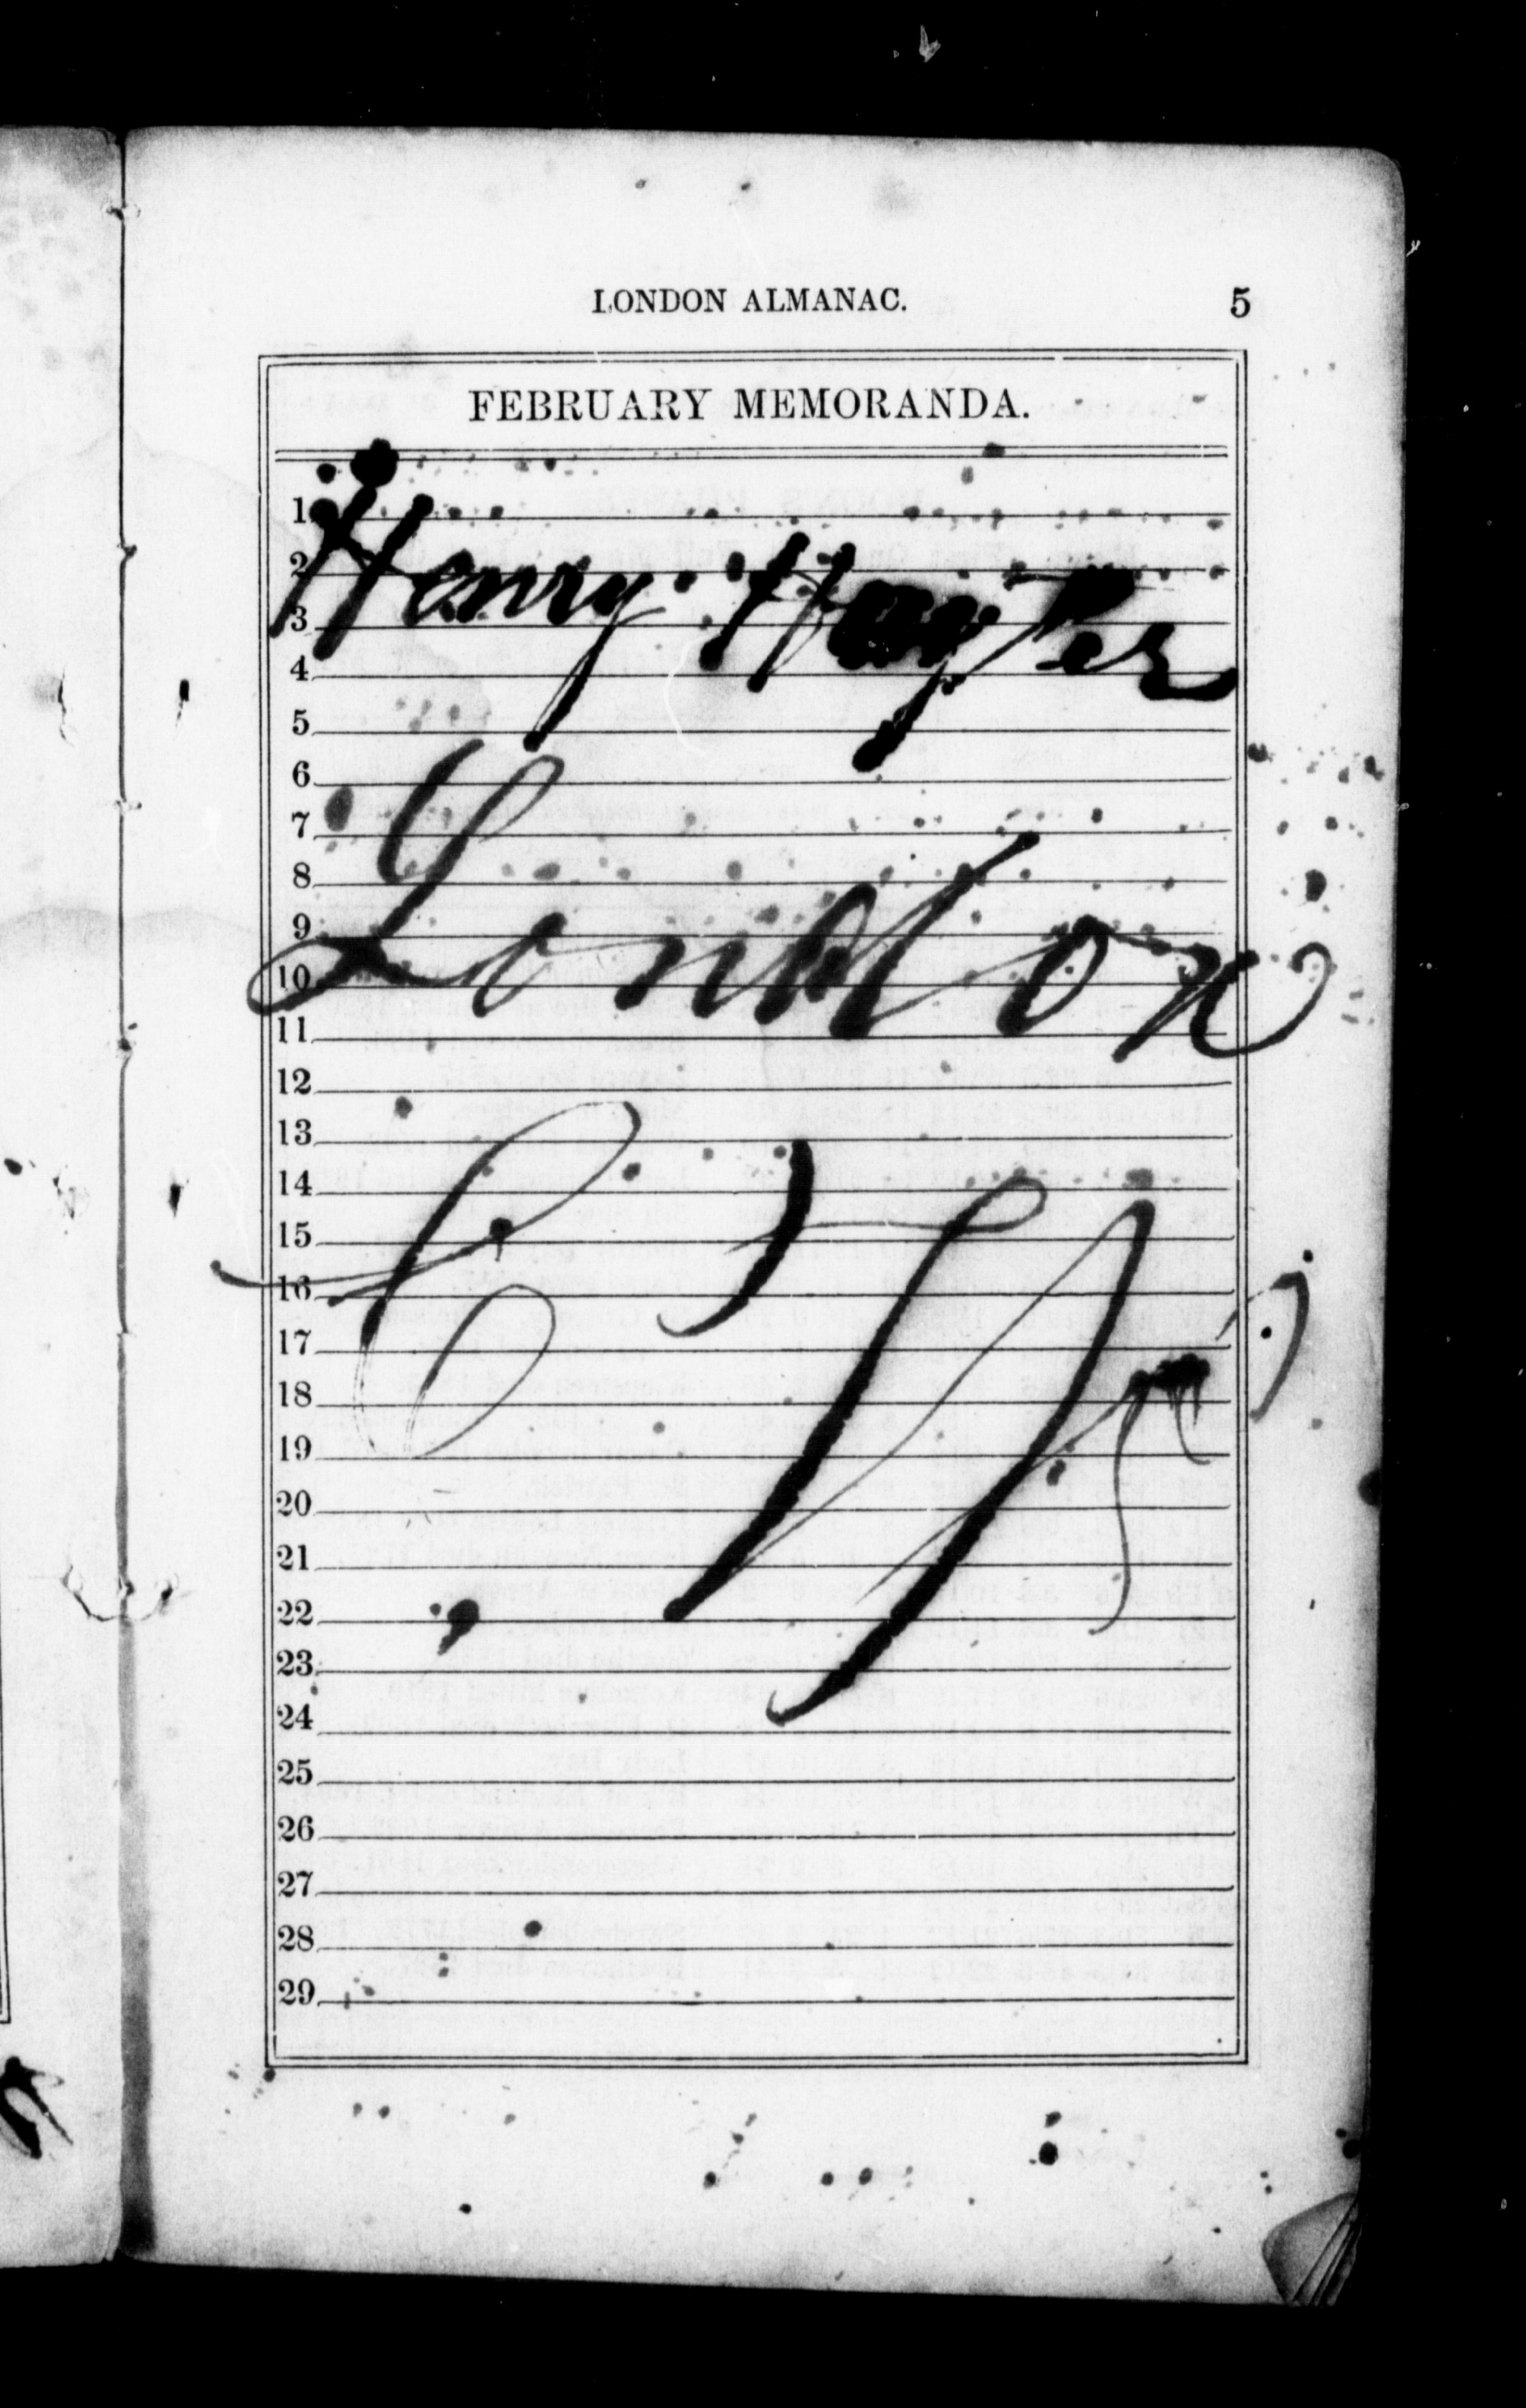 LONDON ALMANAC. 5
FEBRUARY MEMORANDA.
Henry Hayter
London
1
2
3
4
5
6
7
8
9
10
11
12
13
14
15
16
17
18
19
20
21
22
23
24
25
26
27
28
29